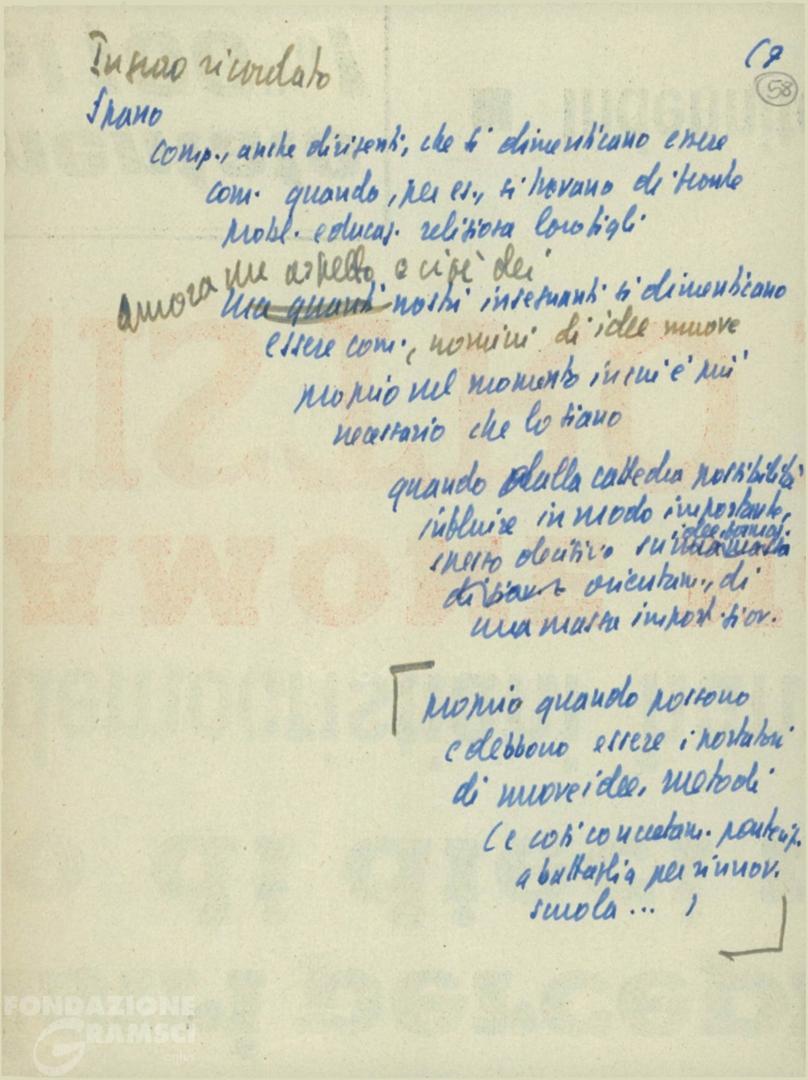 (7
58
Ingrao ricordato
Spano
Comp., anche dirigenti, che si dimenticano essere
com. quando, per es., si trovano di fronte
probl. educaz. religiosa loro figli
ancora un aspetto e cioè dei
ma quanti nostri insegnanti si dimenticano
essere com., uomini di idee nuove
proprio nel momento in cui è più
necessario che lo siano
quando dalla cattedra possibilità
influire in modo importante,
spesso decisivo su
orientam., di
una massa import. giov.
proprio quando possono
e debbono essere i portatori
di nuove idee, metodi
(e così concretam. partecip.
a battaglia per rinnov.
scuola ... )
FONDAZIONE
GRAMSCI